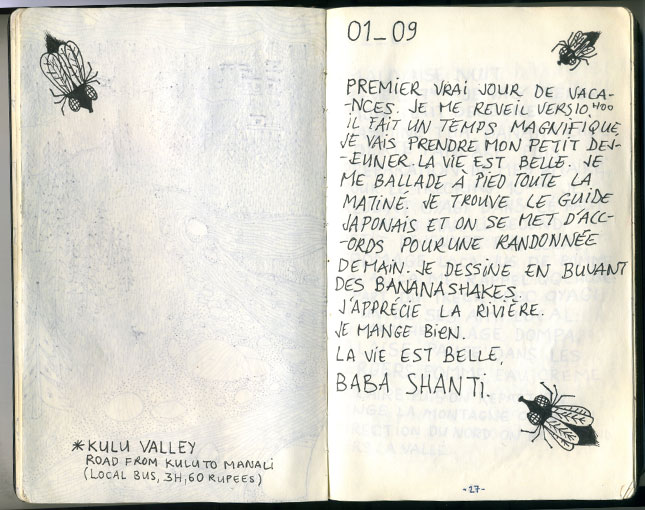 *KULU VALLEY
ROAD FROM KULU TO MANALI
(LOCAL BUS, 3H, 60 RUPEES)
01_09
PREMIER VRAI JOUR DE VACA-
-NCES. JE ME REVEIL VERS 10.H00
IL FAIT UN TEMPS MAGNIFIQUE,
JE VAIS PRENDRE MON PETIT DEJ-
-EUNER. LA VIE EST BELLE. JE
ME BALLADE À PIED TOUTE LA
MATINÉ. JE TROUVE LE GUIDE
JAPONAIS ET ON SE MET D'ACC-
-ORDS POUR UNE RANDONNÉE
DEMAIN. JE DESSINE EN BUVANT
DES BANANASHAKES.
J'APPRÉCIE LA RIVIÈRE.
JE MANGE BIEN.
LA VIE EST BELLE.
BABA SHANTI.
-27-